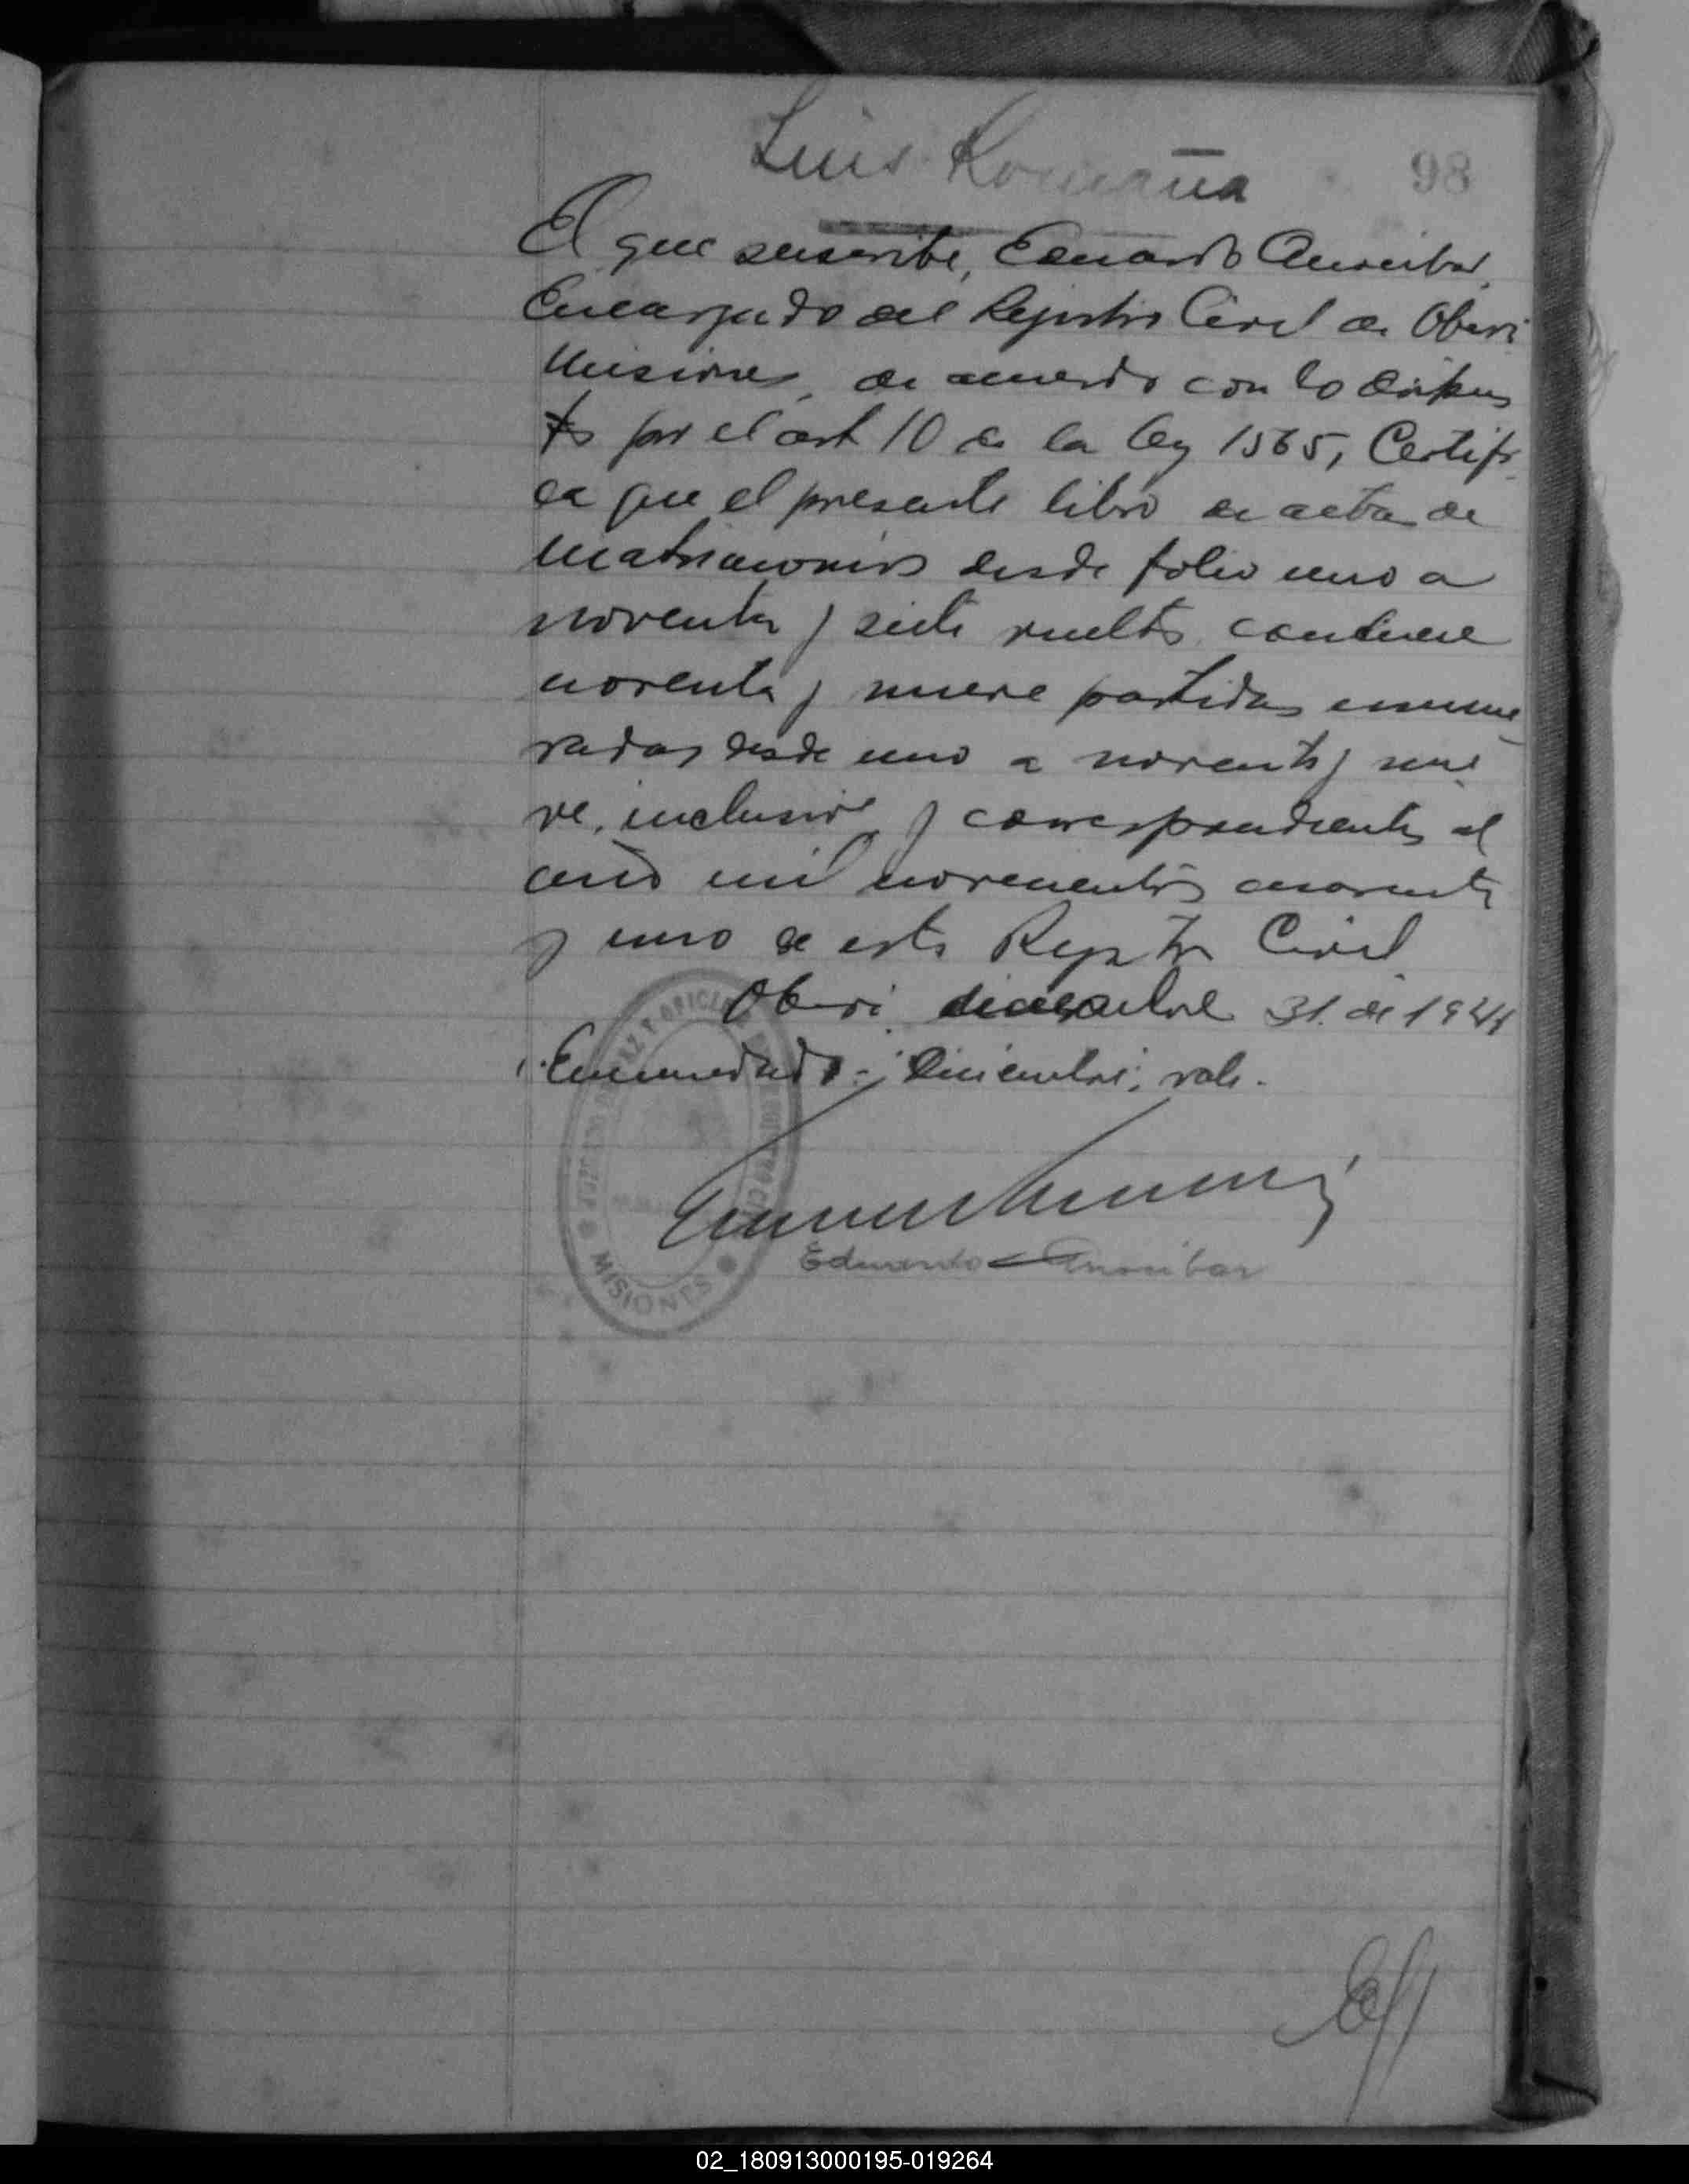 Luis Romaña
98
El que suscribe, Eduardo Ancibar,
Encargado del Rejistro Civil de Oberá
Misiones, de acuerdo con lo dispues
to por el art 10 de la ley 1565, Certifi
ca que el presente libro de actas de
matrimonios desde folio uno a
noventa y siete vuelto contiene
noventa y nueve partidas enume
radas desde uno a noventa y nue
ve, inclusive y correspondientes al
año mil novecientos cuarenta
y uno de este Rejistro Civil
Oberá diciembre 31. de 1941
Enmendado: diciembre: vale.
Eduardo
JUZGADO DE PAZ Y OFICINA
MISIONES
02_180913000195-019264